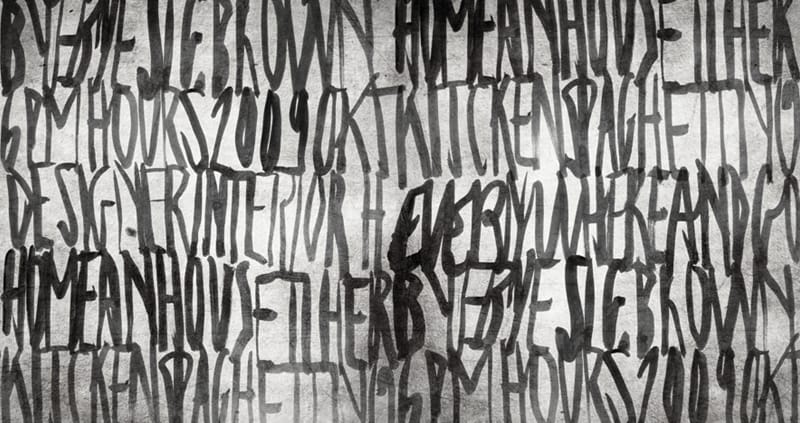 BYEBYE SIEBROWN HOMEANHOUSE HER
6PM HOURS 2009 OKT KITCKEN SPAGHETTI NO
DESIGNER INTERIOR H EVERYWHERE AND GO
HOMEANHOUSE HERB YEBYE SIEBROWN
KITCKEN SPAGHETTI NO 6PM HOURS 2009 OKT